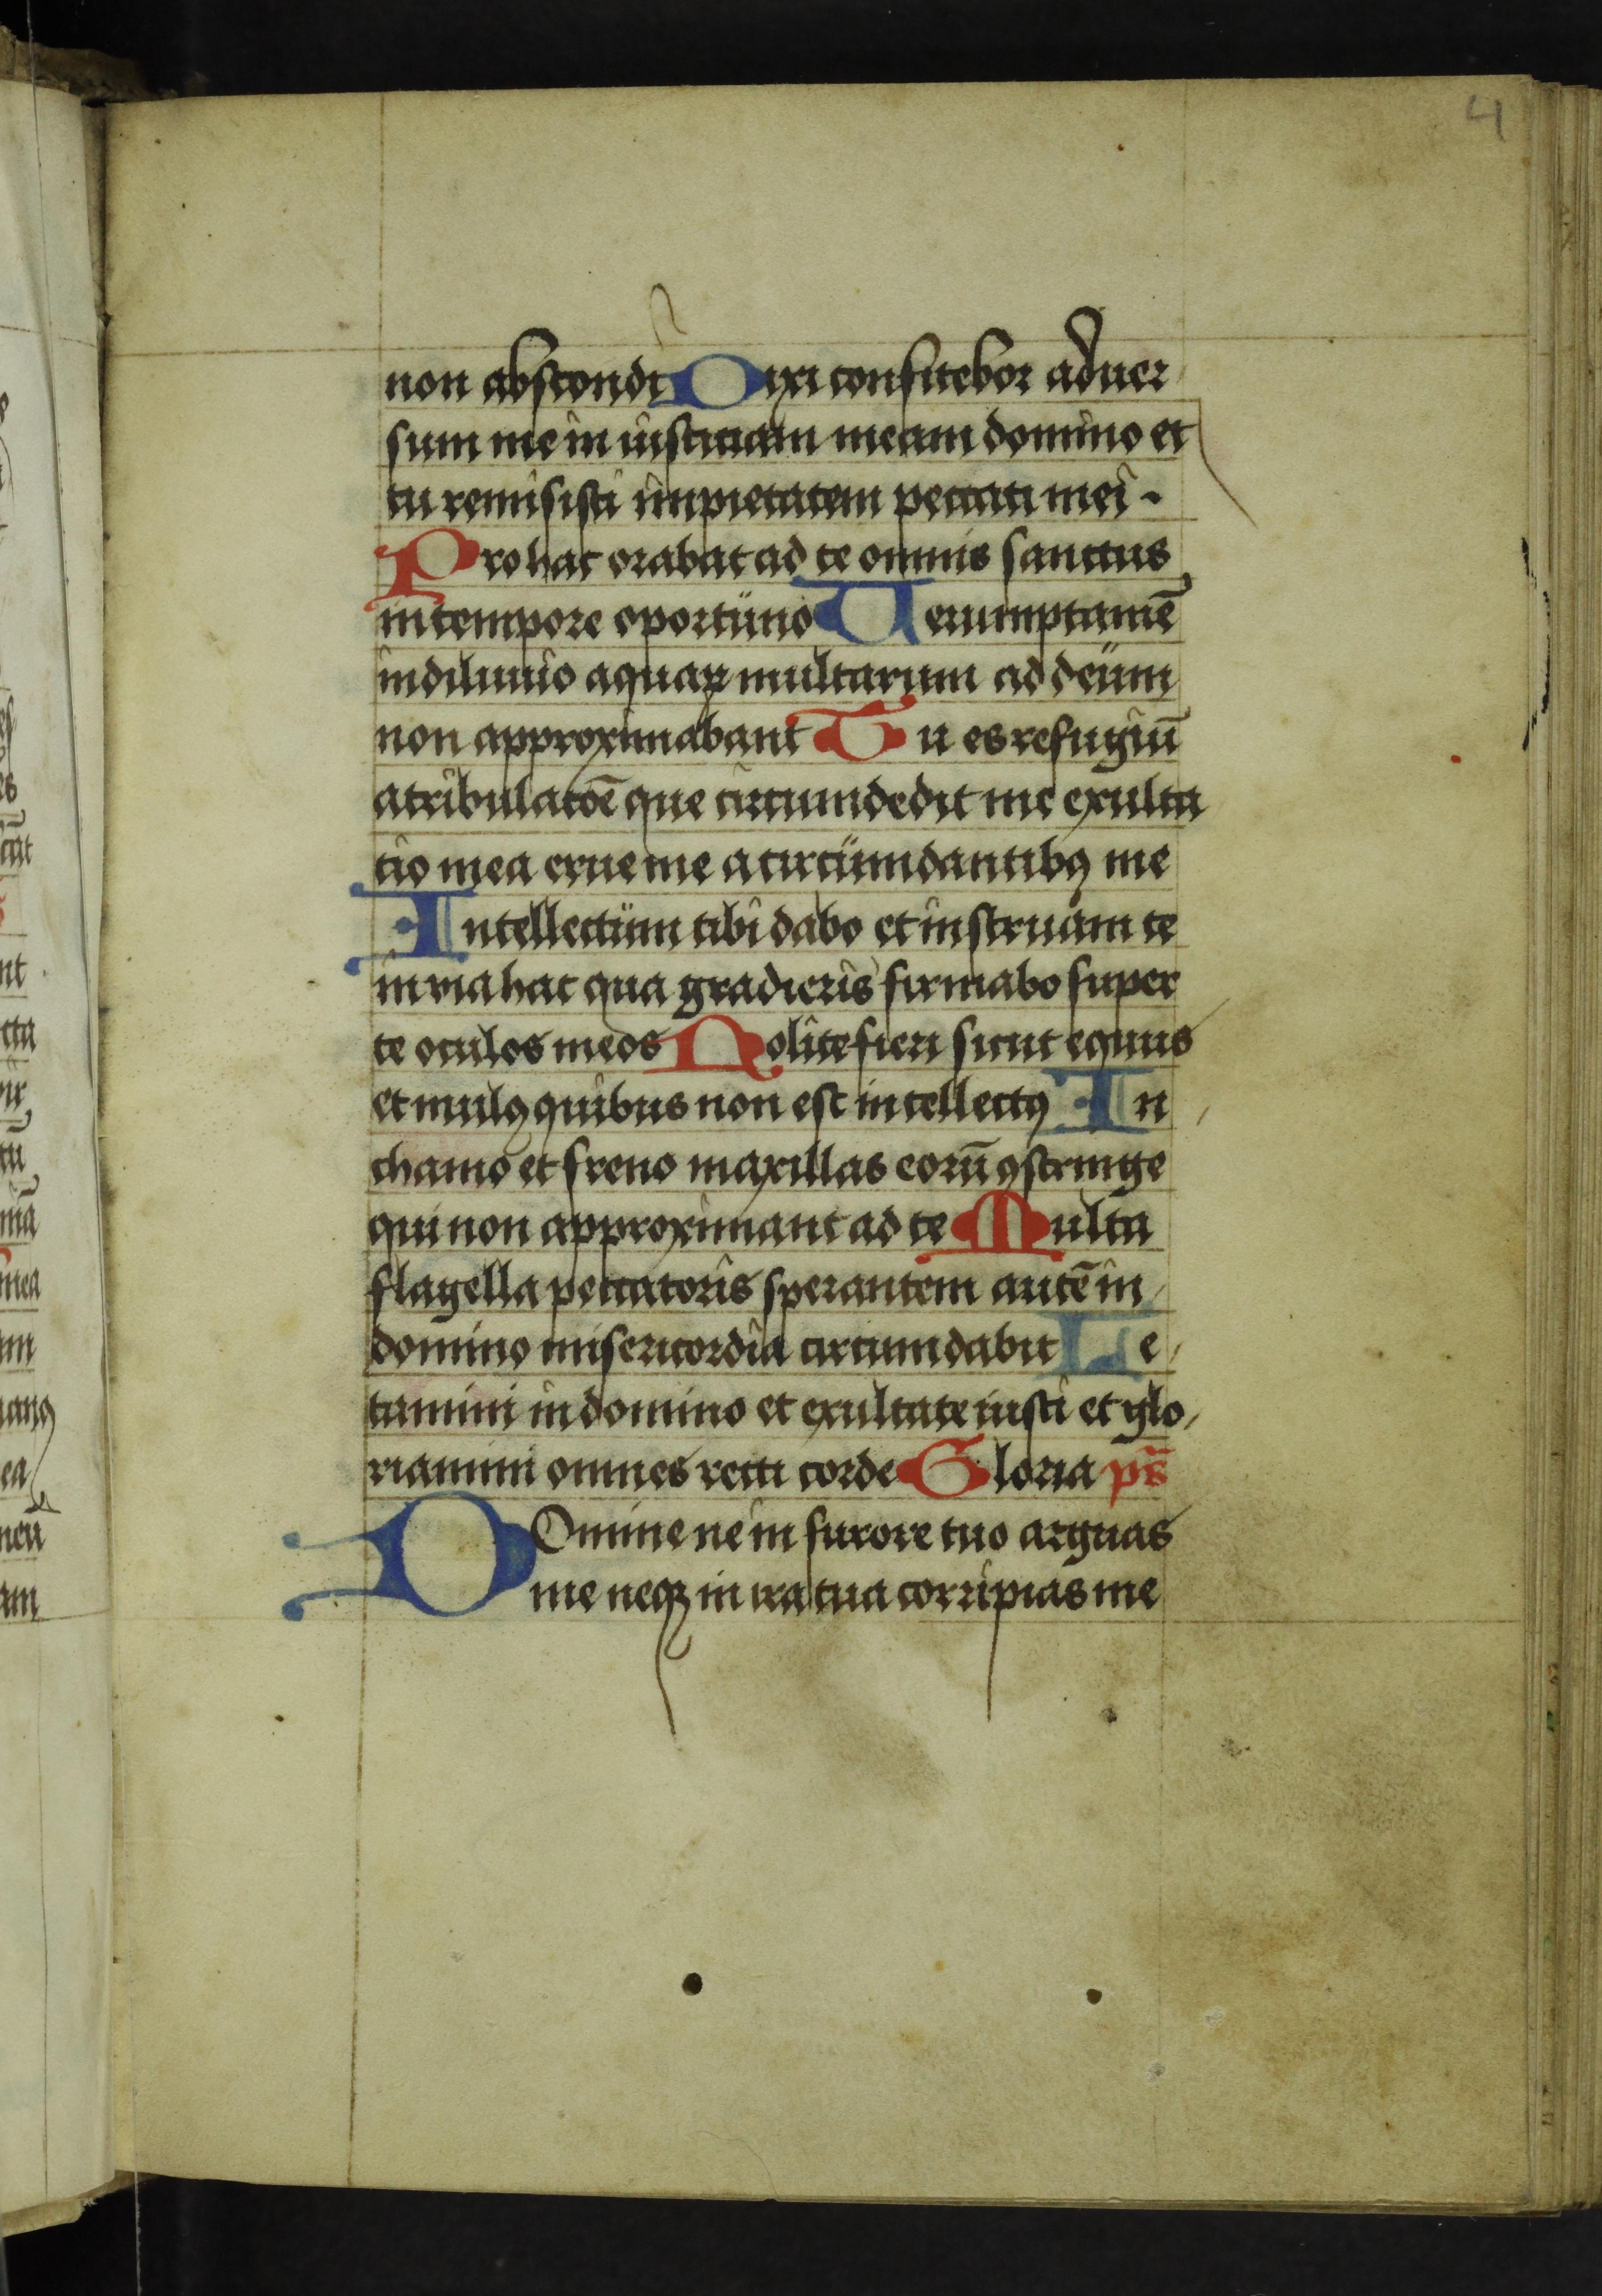 4
non abscondi Dixi confitebor aduer
sum me in iusticiam meam domino et
tu remisisti impietatem peccati mei .
Pro hac orabat ad te omnis sanctus
in tempore oportuno Uerumptamē
in diluuio aquaꝝ multarum ad deum
non approximabant Tu es refugiū
a tribulacōe que circumdedit me exulta
tio mea erue me a circumdantibꝯ me
Intellectum tibi dabo et instruam te
in via hac qua gradieris firmabo super
te oculos meos Nolite fieri sicut equus
et mulꝯ quibus non est intellectꝯ In
chamo et freno maxillas eorū ꝯstringe
qui non approximant ad te Multa
flagella peccatoris sperantem autē in
domino misericordia circumdabit Le
tamini in domino et exultate iusti et glo
riamini omnes recti corde Gloria ps̄
DOmine ne in furore tuo arguas
me neqꝫ in ira tua corripias me